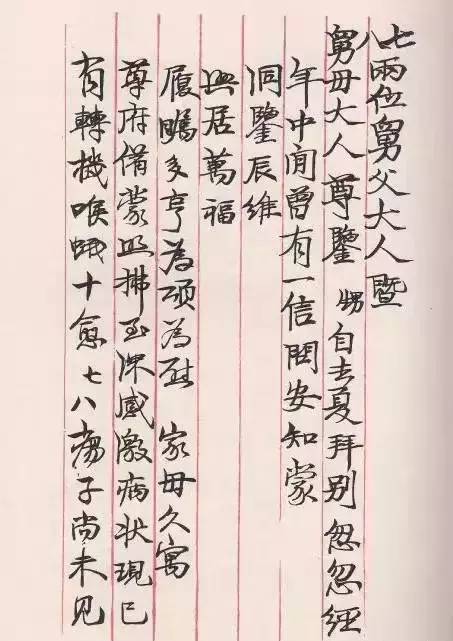 七八兩位舅父大人暨
舅母大人尊鑒 甥自去夏拜別忽忽經
年中間曾有一信問安知蒙
洞鑒辰維
興居萬福
履多亨為頌為慰 家母久寓
尊府備蒙照拂至深感激病狀現已
有轉機喉蛾十愈七八瘍子尚未見